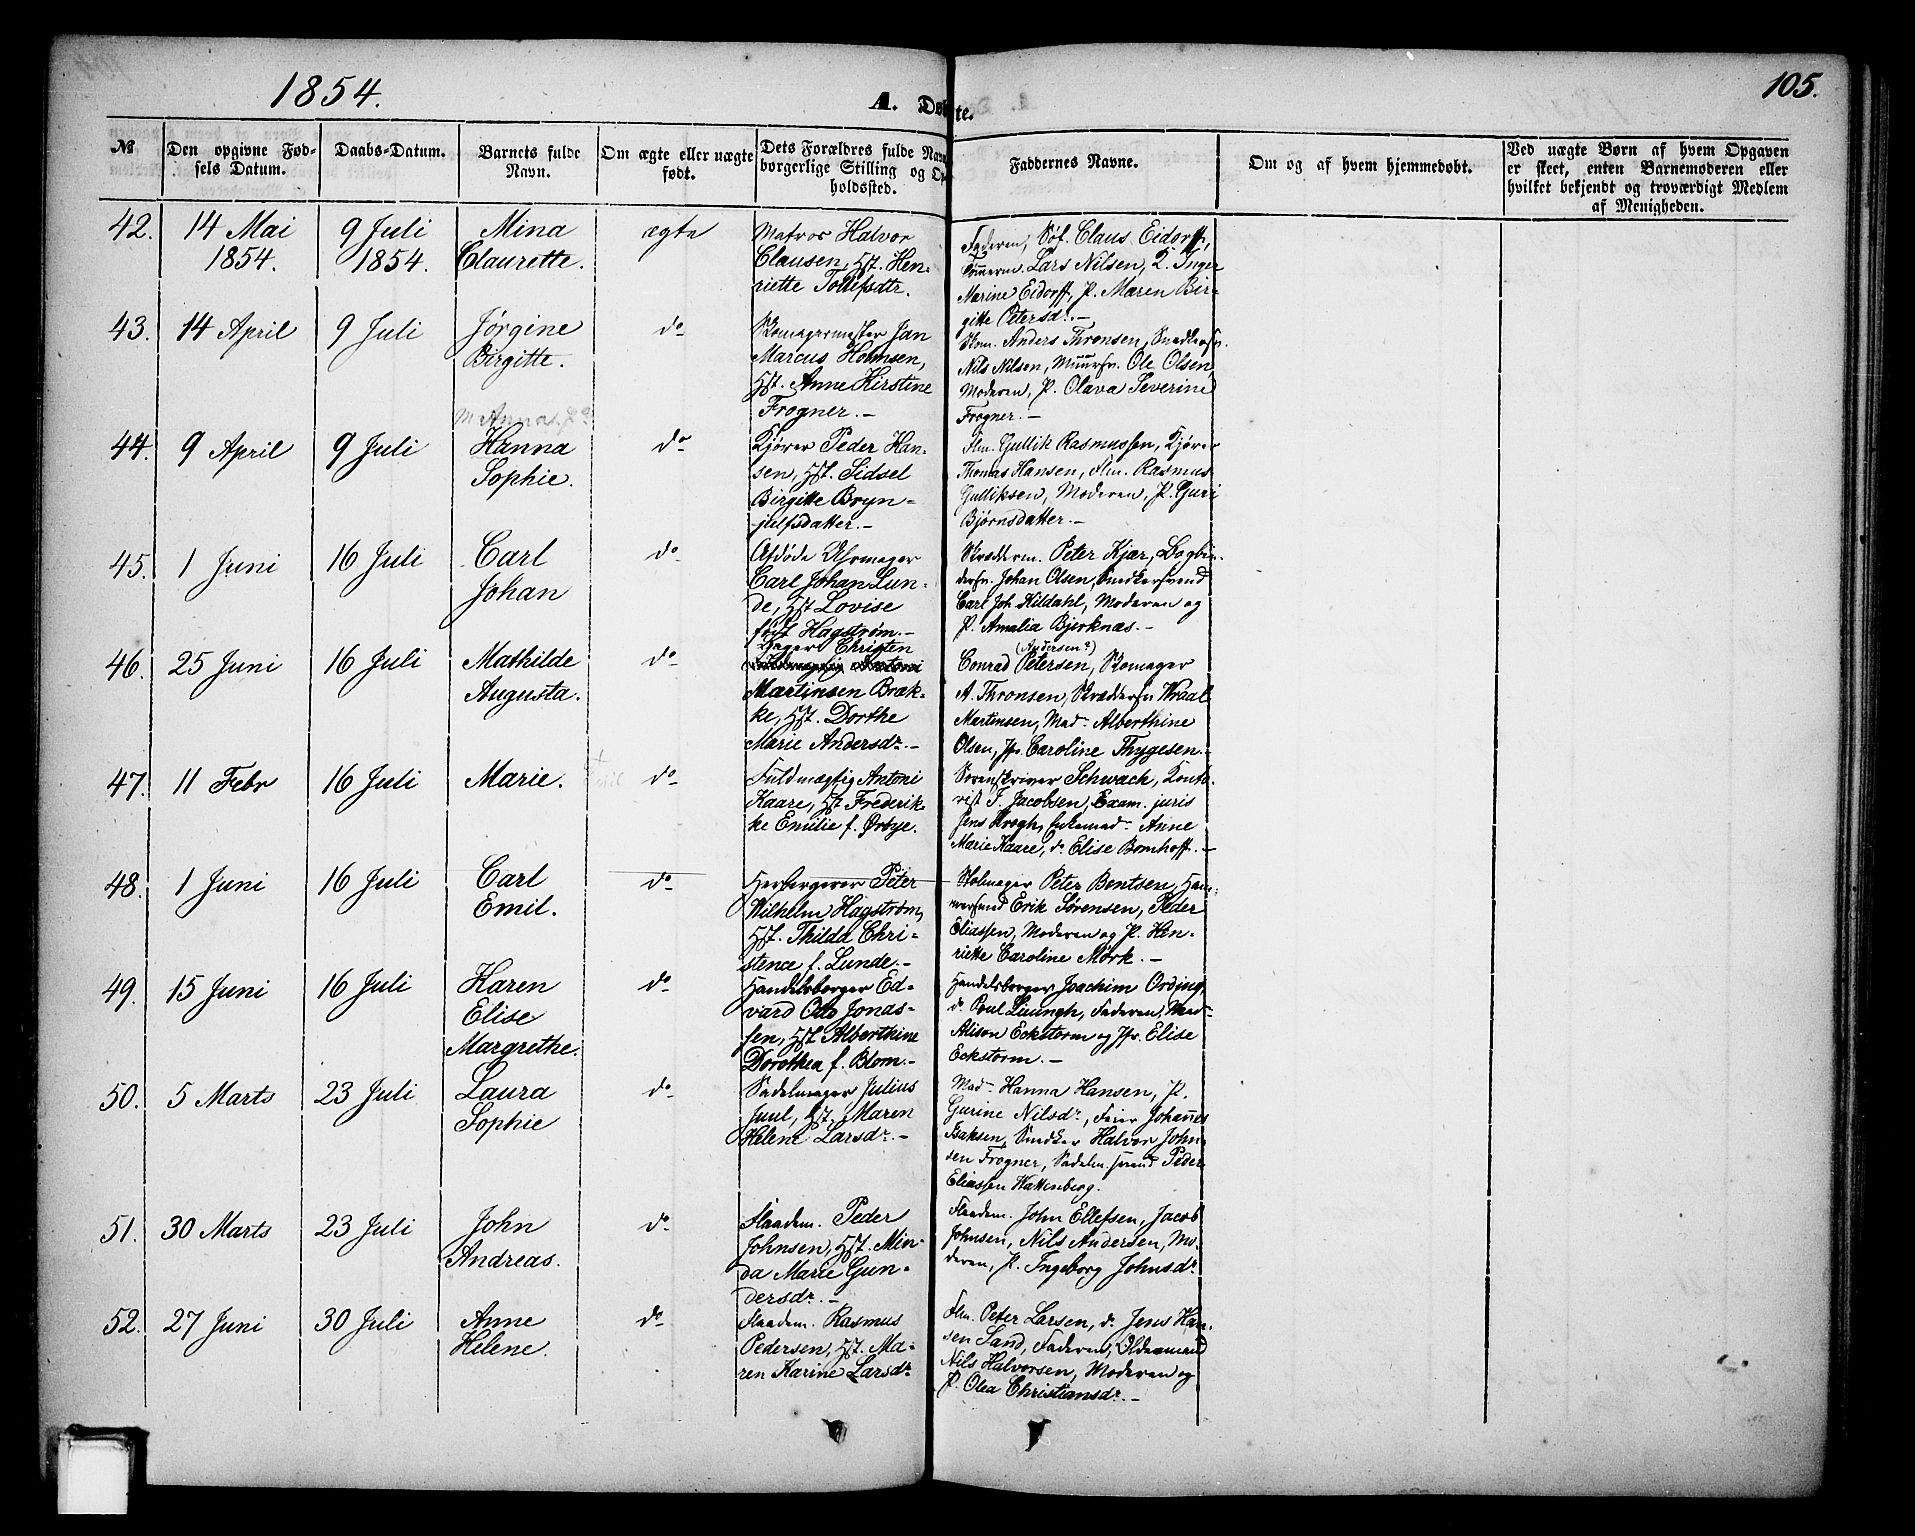 1854.
A. Døbte.
105.
№
Den opgivne Fød-
sels Datum.
Daabs-Datum.
Barnets fulde
Navn.
Om ægte eller uægte
født.
Dets Forældres fulde Navn
borgerlige Stilling og Op-
holdssted.
Faddernes Navne.
Om og af hvem hjemmedøbt.
Ved uægte Børn af hvem Opgaven
er skeet, enten Barnemoderen eller
hvilket bekjendt og troværdigt Medlem
af Menigheden.
42.
14 Mai
1854.
9 Juli
1854.
Mina
Claurette.
ægte
Matros Halvor
Clausen, Hst. Hen-
riette Tollefsdtr.
Faderen, Søf. Claus Eidorff,
Tømerm. Lars Nilsen, Inger
Marine Eidorff, P. Maren Bir-
gitte Petersdr. -
43.
14 April
9 Juli
Jørgine
Birgitte.
do
Skomagermester Jan
Marcus Holmsen,
Hst. Anne Kirstine
Frogner. -
Skom. Anders Thronsen, Snedkersv.
Nils Nilsen, Muursv. Ole Olsen,
Moderen, P. Olava Severine
Frogner. -
Anna
44.
9 April
9 Juli
Hanna
Sophie.
do
Kjører Peder Han-
sen, Hst. Sidsel
Birgitte Bryn-
julfsdatter. -
Flm. Gullik Rasmussen, Kjører
Thomas Hansen, Flm. Rasmus
Gulliksen, Moderen, P. Guri
Bjørnsdatter. -
45.
1 Juni
16 Juli
Carl
Johan
do
Afdøde Uhrmager
Carl Johan Lun-
de, Hst Lovise
født Hagstrøm. -
Skrædderm. Peter Kjær, Bogbin-
dersv. Johan Olsen, Snedkersvend
Carl Joh Kildahl, Moderen og
P. Amalia Bjerknæs. -
46.
25 Juni
16 Juli
Mathilde
Augusta.
do
Christen
Martinsen Bræk-
ke, Hst. Dorthe
Marie Andersdr. -
(Andersen?)
Conrad Petersen, Skomager
A. Thronsen, Skræddersv Wraal
Martinsen, Mad. Alberthine
Olsen, Jfr. Caroline Thygesen. -
47.
11 Febr
16 Juli
Marie.
do
Fuldmægtig Antoni
Kaare, Hst Frederik-
ke Emilie f. Ørbye.
Sorenskriver Schwach, Konto-
rist T. Jacobsen, Exam. juris
Jens Krogh, Enkemad. Anne
Marie Kaare, do Elise Bomhoff. -
48.
1 Juni
16 Juli
Carl
Emil.
do
Herbergerer Peter
Wilhelm Hagstrøm,
Hst. Thilda Chri-
stence f. Lunde. -
Stolmager Peter Bentsen, Ham-
mersmed Erik Sørensen, Peder
Eliassen, Moderen og P. Hen-
riette Caroline Mørk. -
49.
15 Juni
16 Juli
Karen
Elise
Margrethe.
do
Handelsborger Ed-
vard Odo Jonas-
sen, Hst Alberthine
Dorothea f. Blom. -
Handelsborger Joachim Ording,
do Poul Liungh, Faderen, Mad.
Alison Eckstorm og Jfr. Elise
Eckstorm. -
50.
5 Marts
23 Juli
Laura
Sophie
do
Sadelmager Julius
Juul, Hst. Maren
Helene Larsdr. -
Mad. Hanna Hansen, P.
Gurine Nilsdr., Feier Johannes
Isaksen, Snedker Halvor John-
sen Frogner, Sadelm.svend Peder
Eliassen Wattenberg.
51.
30 Marts
23 Juli
John
Andreas.
do
Flaadem. Peder
Johnsen, Hst. Min-
da Marie Gun-
dersdr. -
Flaadem. John Ellefsen, Jacob
Johnsen, Nils Andersen, Mo-
deren, P. Ingeborg Johnsdr.
52.
27 Juni
30 Juli
Anne
Helene.
do
Flaadem. Rasmus
Pedersen, Hst. Ma-
ren Karine Larsdr.
Flm. Peter Larsen, do Jens Han-
sen Sand, Faderen, Oldermand
Nils Halvorsen, Moderen og
P. Olea Christiansdr. -